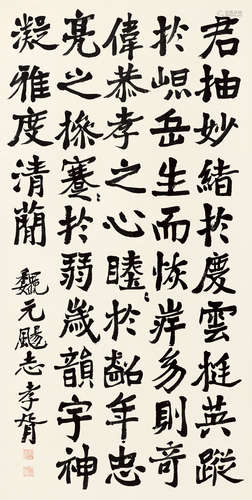 君抽妙緒於慶雲挺英蹤
於崐岳生而恢岸幼則奇
偉恭孝之心睦於齠年忠
亮之操蹇於弱歲韻宇神
凝雅度清蘭
魏元颺志孝胥